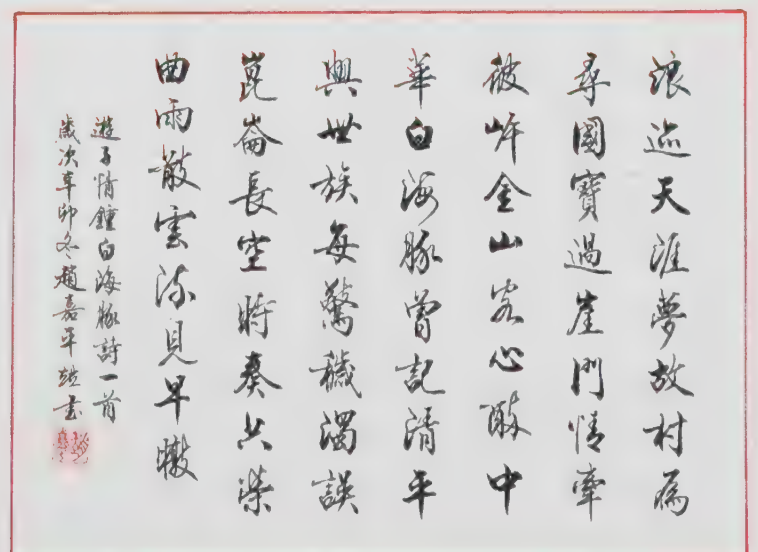 浪迹天涯夢故村為
尋國寶過崖門情牽
彼岸金山客心酥中
華白海豚曾記清平
興世族每驚穢濁誤
崑崙長空時奏共榮
曲雨散雲流見早暾
遊子情鍾白海豚詩一首
歲次辛卯冬趙嘉平書